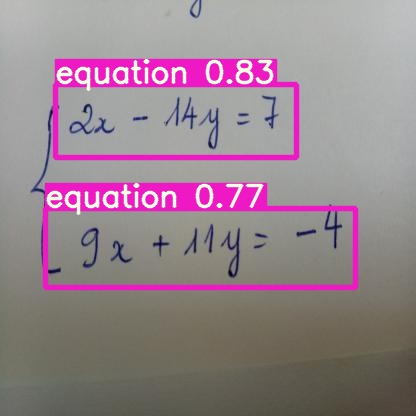 equation 0.83
2x - 14y = 7
equation 0.77
9x + 11y = -4